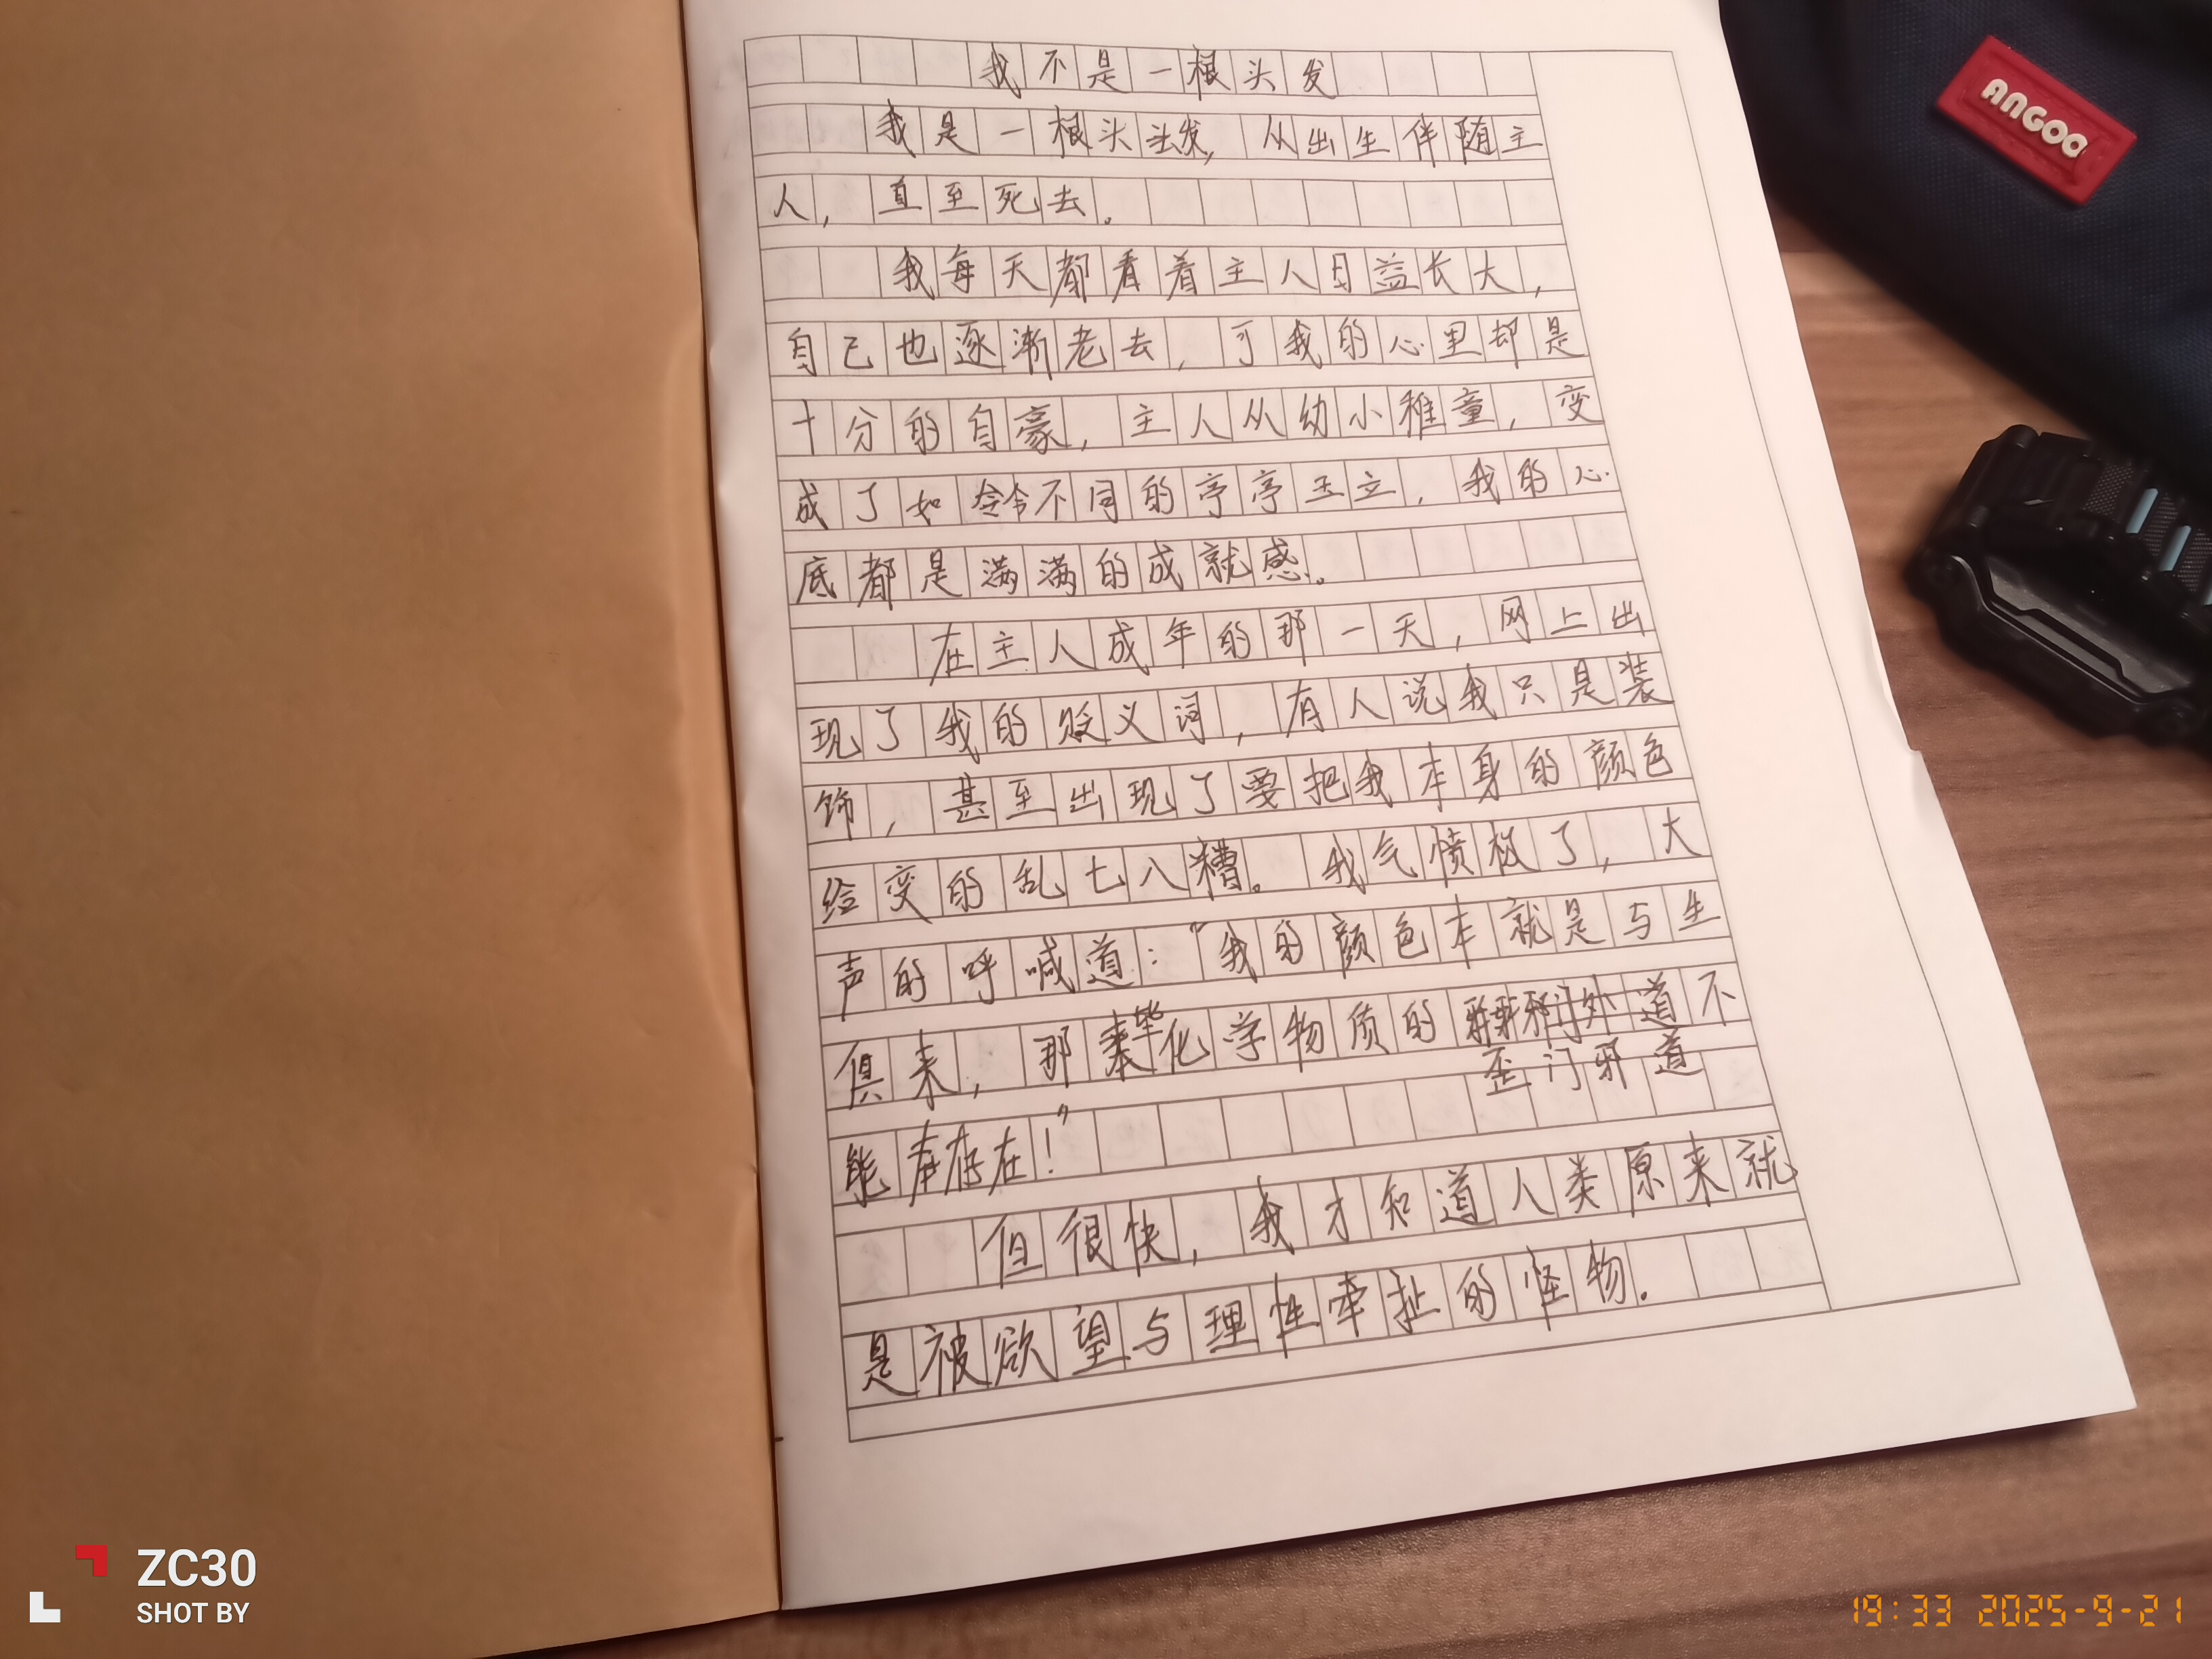 我不是一根头发
我是一根头发，从出生伴随主
人，直至死去。
我每天都看着主人日益长大，
自己也逐渐老去，可我的心里却是
十分的自豪，主人从幼小稚童，变
成了如今不同的亭亭玉立，我的心
底都是满满的成就感。
在主人成年的那一天，网上出
现了我的贬义词，有人说我只是装
饰，甚至出现了要把我本身的颜色
给变的乱七八糟。我气愤极了，大
声的呼喊道：“我的颜色本就是与生
俱来，那群化学物质的不
歪门邪道
能存在！”
但很快，我才知道人类原来就
是被欲望与理性牵扯的怪物。
ANGOO
ZC30
SHOT BY
19:33 2025-9-21